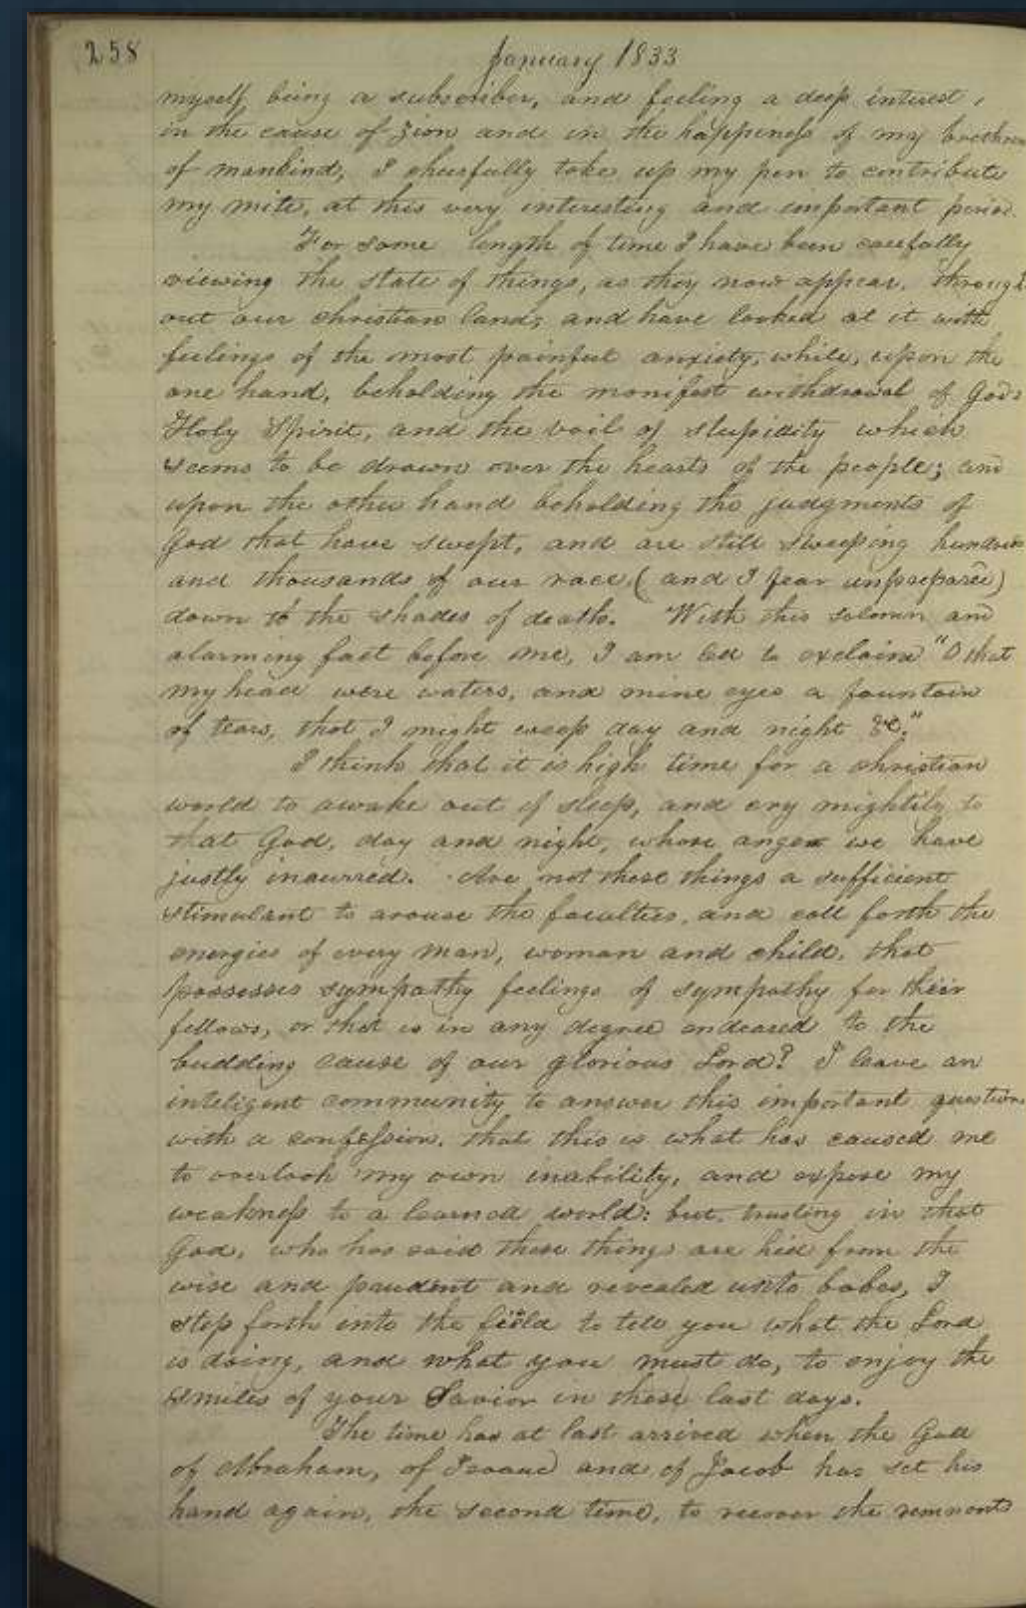 258
January 1833
myself, being a subscriber, and feeling a deep interest,
in the cause of Zion and in the happiness of my brethren
of mankind, I cheerfully take up my pen to contribute
my mite, at this very interesting and important period.
For some length of time I have been carefully
viewing the state of things, as they now appear, through
out our christian land; and have looked at it with
feelings of the most painful anxiety, while, upon the
one hand, beholding the manifest withdrawal of Gods
Holy Spirit, and the vail of stupidity which
seems to be drawn over the hearts of the people; and
upon the other hand beholding the judgments of
God that have swept, and are still sweeping hundreds
and thousands of our race, (and I fear unprepared)
down to the shades of death. With this solemn and
alarming fact before me, I am led to exclaim "O that
my head were waters, and mine eyes a fountain
of tears, that I might weep day and night &c."
I think that it is high time for a christian
world to awake out of sleep, and cry mightily to
that God, day and night, whose anger we have
justly incurred. Are not these things a sufficient
stimulant to arouse the faculties, and call forth the
energies of every man, woman and child, that
possesses sympathy feelings of sympathy for their
fellows, or that is in any degree endeared to the
budding cause of our glorious Lord? I leave an
inteligent community to answer this important question
with a confession, that this is what has caused me
to overlook my own inability, and expose my
weakness to a learned world: but, trusting in that
God, who has said these things are hid from the
wise and prudent and revealed unto babes, I
step forth into the field to tell you what the Lord
is doing, and what you must do, to enjoy the
smiles of your Savior in these last days.
The time has at last arrived when the God
of Abraham, of Isaac and of Jacob has set his
hand again, the second time, to recover the remnants